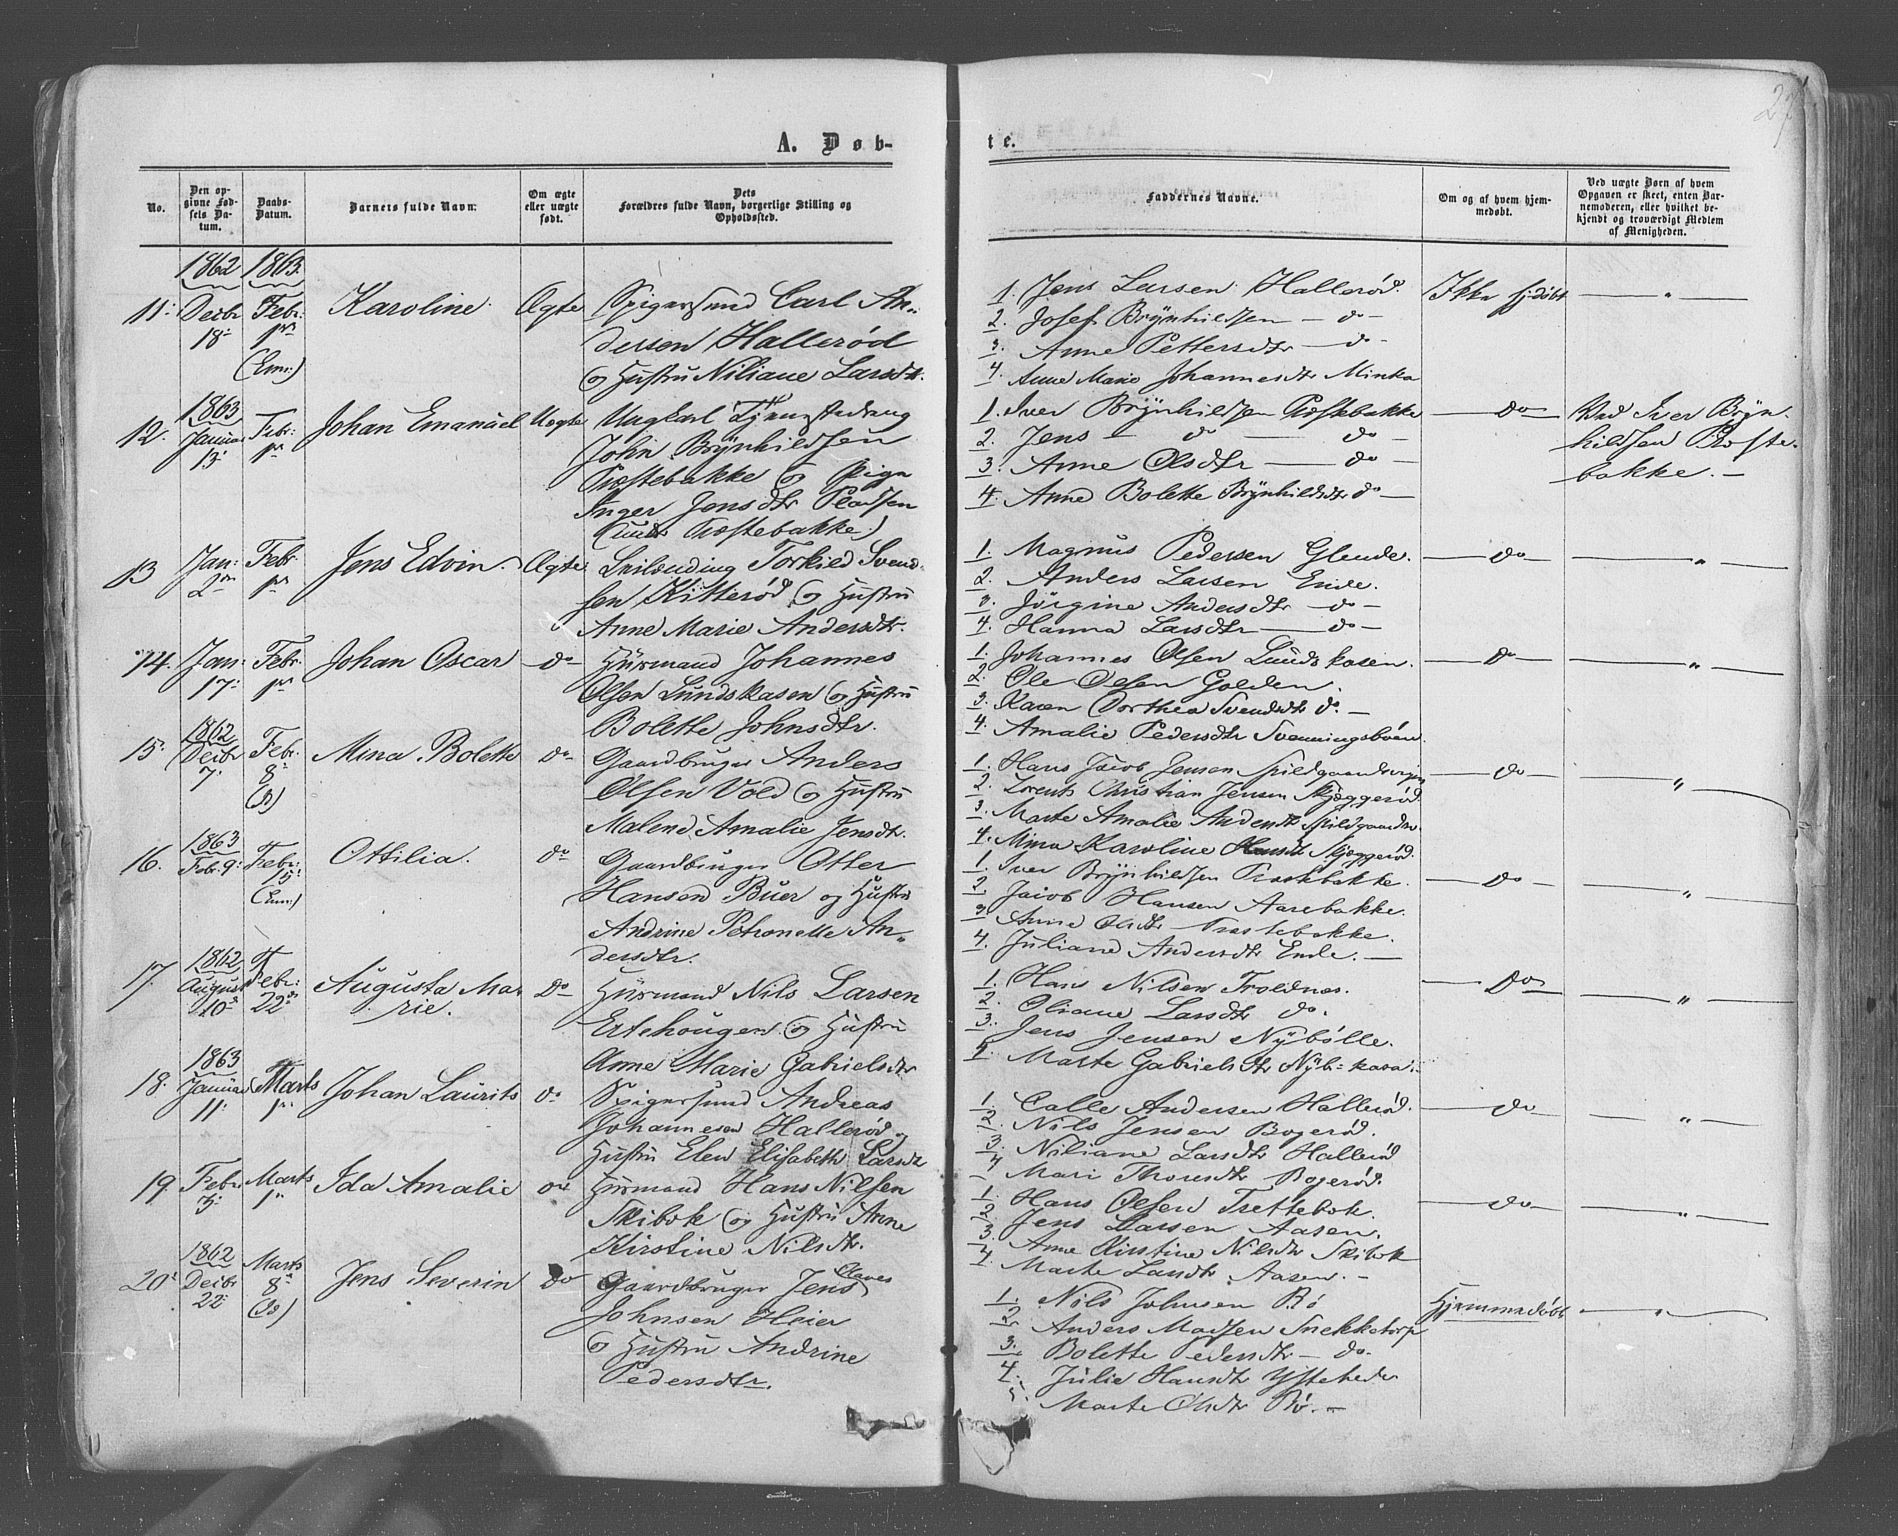 27
A. Døb-
te.
No.
Den op-
givne Fød-
sels Da-
tum.
Daabs-
Datum.
Barnets fulde Navn.
Om ægte
eller uægte
født.
Dets
Forældres fulde Navn, borgerlige Stilling og
Opholdssted.
Faddernes Navne.
Om og af hvem hjem-
medøbt.
Ved uægte Børn af hvem
Opgaven er skeet, enten Bar-
nemoderen, eller hvilket be-
kjendt og troværdigt Medlem
af Menigheden.
1862 1863
11. Decbr 18 Febr. 1ste (Enn:) Karoline. Ægte
Carl An-
dersen Hallerød
og Hustru Niliane Larsdtr.
1. Jens Larsen Hallerød.
2. Josef Brynhildsen — do —
3. Anne Pettersdtr — do —
4. Anne Marie Johannesdtr Minka
Ikke hjdøbt — " —
1863
12. Januar 13 Febr. 1ste Johan Emanuel Uægte
Ungkarl
John Brynhildsen
Træstebakke og Pige
Inger Jensdtr
Træstebakke)
1. Iver Brynhildsen Træstbakke
2. Jens — do — do —
3. Anne Olsdtr — do —
4. Anne Bolette Brynhildsdtr do —
— do —
Ved Iver Bryn-
hildsen Træste-
bakke. —
13 Jan: 2den Febr. 1ste Jens Edvin. Ægte
Leilænding Torkild Svend-
sen Kitterød og Hustru
Anne Marie Andersdtr.
1. Magnus Pedersen Glende.
2. Anders Larsen Ende.
3. Jörgine Andersdtr — do —
4. Hanna Larsdtr — do —
— do — "
14. Jan: 17. Febr. 1ste Johan Oscar — do —
Huusmand Johannes
Olsen Lundskasen og Hustru
Bolette Johnsdtr.
1. Johannes Olsen Lundskasen.
2. Ole Olsen Golden.
3. Karen Dorthea Svendsdtr do. —
4. Amalie Pedersdtr Svenningsbøen.
— do — "
1862
15. Decbr 7. Febr. 8 (Is) Mina Bolette do —
Gaardbruger Anders
Olsen Vold og Hustru
Malene Amalie Jensdtr.
1. Hans Jacob Jensen
2. Lorents Christian Jensen Skjæggerød.
3. Marte Amalie
4. Mina Karoline Hansdtr Skjæggerød.
— do — "
1863
16. Febr. 9. Febr. 15 (Enn:) Ottilia. do
Gaardbruger Otter
Hansen Buer og Hustru
Andrine Petronelle An-
dersdtr.
1. Iver Brynhildsen Træstbakke.
2. Jacob Hansen Aarebakke.
3. Anne Olsdtr Træstebakke.
4. Juliane Andersdtr Ende. —
— do — "
1862
17. August 10de Febr. 22de Augusta Ma-
rie. do —
Huusmand Nils Larsen
Ertehougen. og Hustru
Anne Marie Gabrielsdtr
1. Hans Nilsen Troldnæs.
2. Oliane Larsdtr do.
3. Jens Jensen Nybølle.
4. Marte Gabrielsdtr
— do — "
1863
18. Januar 11. Marts 1ste Johan Laurits do
Andreas
Johannesen Hallerød og
Hustru Elen Elisabeth Larsdtr
1. Calle Andersen Hallerød.
2. Nils Jensen Bogerød.
3. Niliane Larsdtr Hallerød
4 Mari Bogerød.
— do — "
19. Febr. 3. Marts 1ste Ida Amalie do
Huusmand Hans Nilsen
Skibok og Hustru Anne
Kirstine Nilsdtr.
1. Hans Olsen Trettebok.
2. Jens Larsen Aasen.
3. Anne Kirstine Nilsdtr Skibok
4. Marte Larsdtr Aasen. —
— do — "
1862
20. Decbr 22 Marts 8 (Is) Jens Severin do
Gaardbruger Jens
Johnsen Heier
og Hustru Andrine
Pedersdtr.
1. Nils Johnsen Bø
2. Anders Madsen Snekketorp
3. Bolette Pedersdtr — do —
4. Julie Hansdtr Ystehede
5. Marte Olsdtr Bø. —
Hjemmedøbt — " —